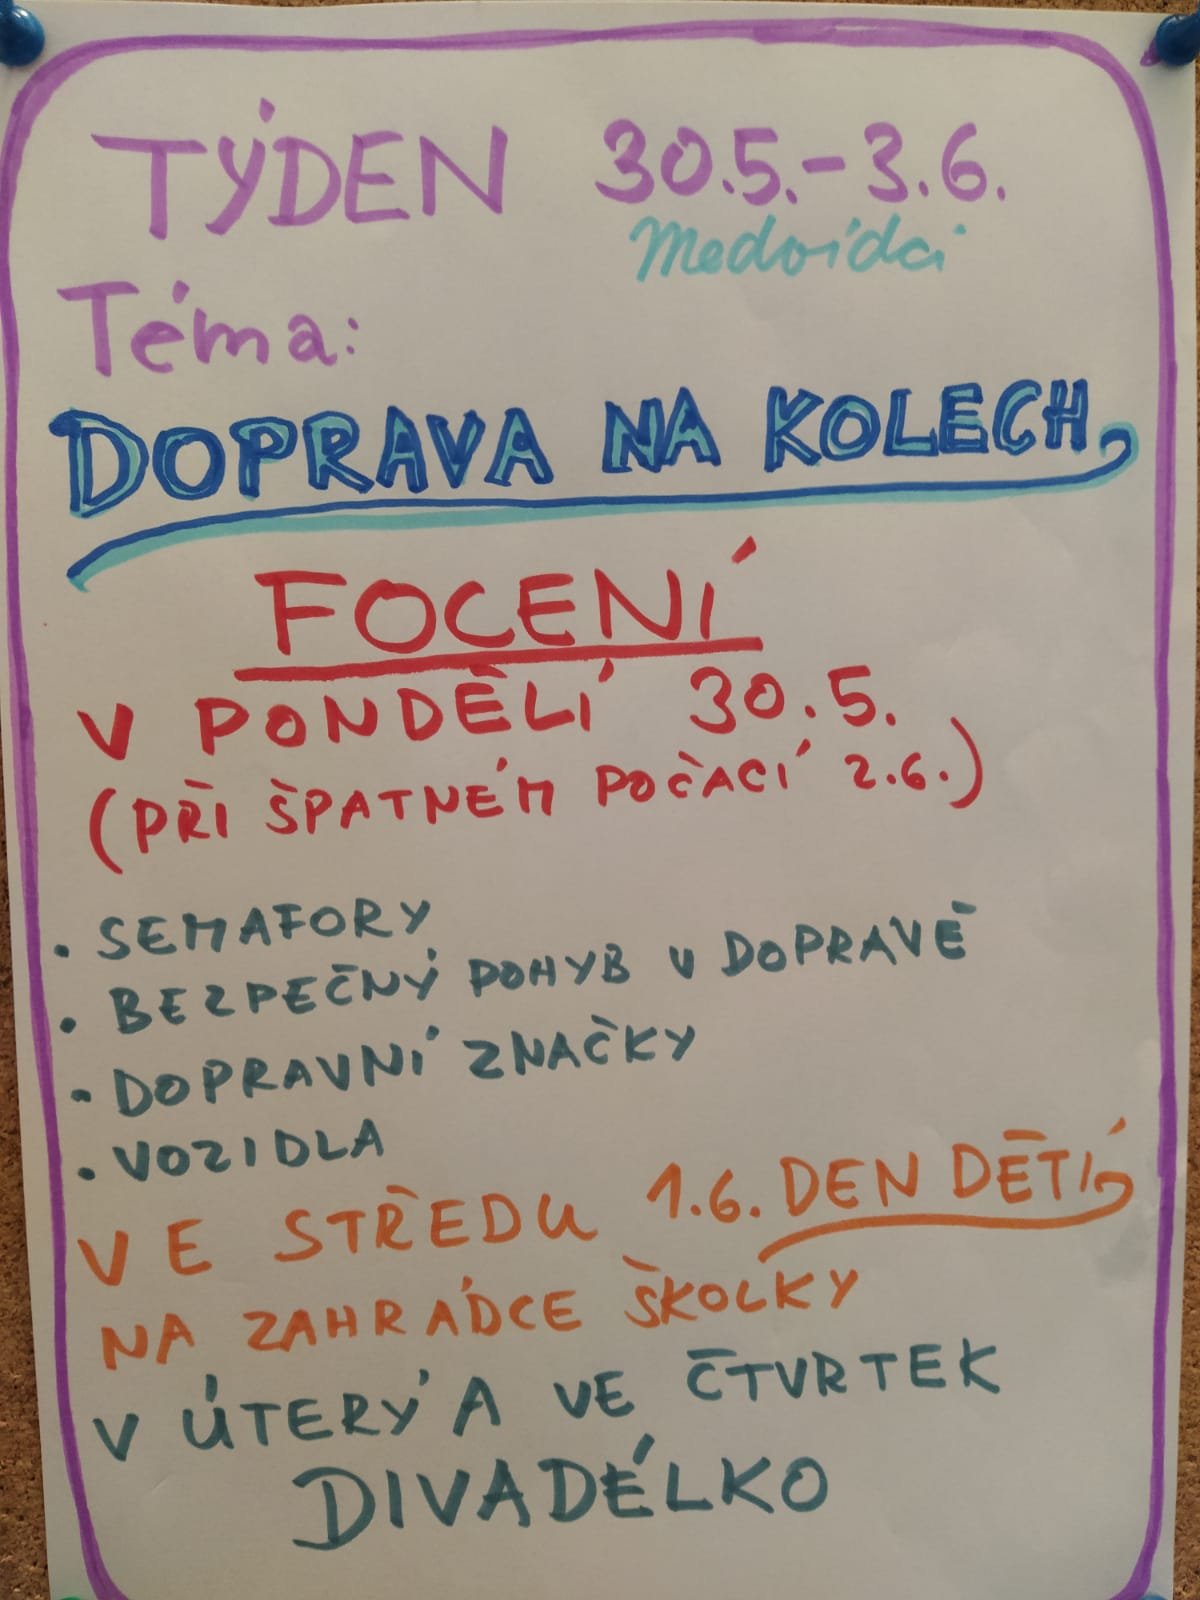 TÝDEN 30.5.-3.6.
Medvídci
Téma:
DOPRAVA NA KOLECH
FOCENÍ
V PONDĚLÍ 30.5.
(PŘI ŠPATNÉM POČACÍ 2.6.)
• SEMAFORY
• BEZPEČNÝ POHYB V DOPRAVĚ
• DOPRAVNÍ ZNAČKY
• VOZIDLA
VE STŘEDU 1.6. DEN DĚTÍ
NA ZAHRÁDCE ŠKOLKY
V ÚTERÝ A VE ČTVRTEK
DIVADÉLKO